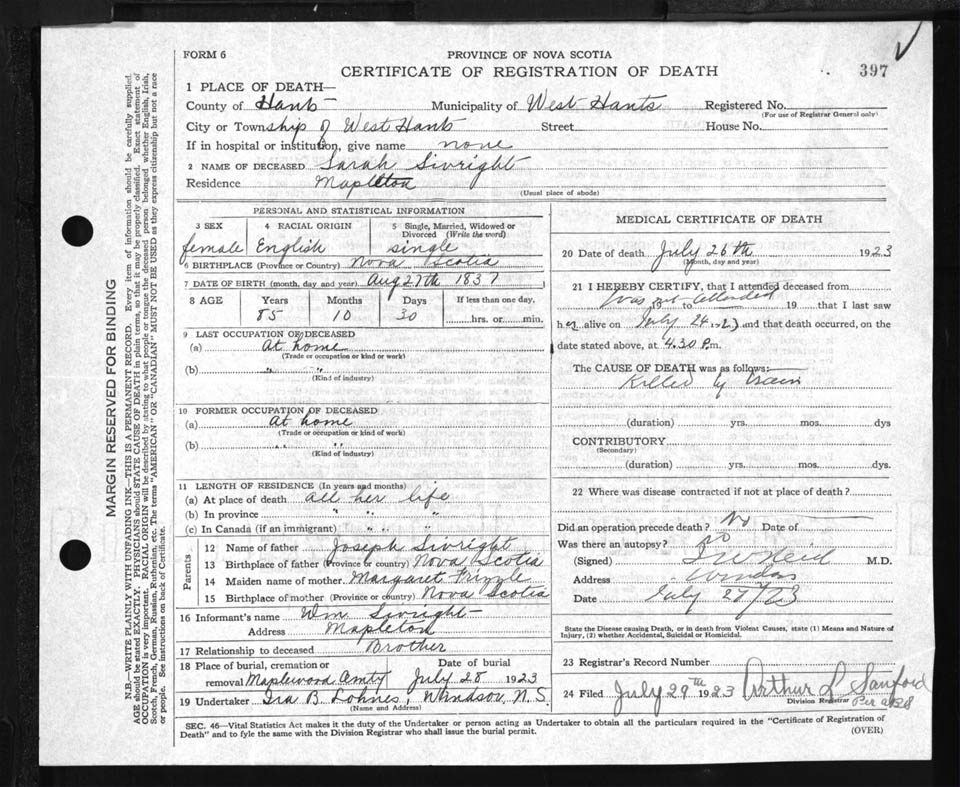 FORM 6
PROVINCE OF NOVA SCOTIA
CERTIFICATE OF REGISTRATION OF DEATH
397
1 PLACE OF DEATH—
County of Hants Municipality of West Hants Registered No.
(For use of Registrar General only)
City or Township of West Hants Street House No.
If in hospital or institution, give name none
2 NAME OF DECEASED Sarah Sivright
Residence Mapleton
(Usual place of abode)
PERSONAL AND STATISTICAL INFORMATION
3 SEX 4 RACIAL ORIGIN 5 Single, Married, Widowed or Divorced (Write the word)
female English single
6 BIRTHPLACE (Province or Country) Nova Scotia
7 DATE OF BIRTH (month, day and year) Aug 27th 1837
8 AGE Years Months Days If less than one day,
85 10 30 hrs. or min.
9 LAST OCCUPATION OF DECEASED
(a) At home
(Trade or occupation or kind or work)
(b) " "
(Kind of industry)
10 FORMER OCCUPATION OF DECEASED
(a) At home
(Trade or occupation or kind of work)
(b) " "
(Kind of industry)
11 LENGTH OF RESIDENCE (In years and months)
(a) At place of death all her life
(b) In province " " "
(c) In Canada (if an immigrant) " " "
Parents
12 Name of father Joseph Sivright
13 Birthplace of father (Province or country) Nova Scotia
14 Maiden name of mother Margaret Frizzle
15 Birthplace of mother (Province or country) Nova Scotia
16 Informant's name Wm Sivright
Address Mapleton
17 Relationship to deceased Brother
18 Place of burial, cremation or removal Maplewood Cmty Date of burial July 28 1923
19 Undertaker Ira B. Lohnes, Windsor, N.S.
(Name and Address)
MEDICAL CERTIFICATE OF DEATH
20 Date of death July 26th 1923
(Month, day and year)
21 I HEREBY CERTIFY, that I attended deceased from
Was not attended to 19 that I last saw
her alive on July 24 1923 and that death occurred, on the
date stated above, at 4.30 P.m.
The CAUSE OF DEATH was as follows:
Killed by Train
(duration) yrs. mos. dys
CONTRIBUTORY
(Secondary)
(duration) yrs. mos. dys.
22 Where was disease contracted if not at place of death?
Did an operation precede death? No Date of
Was there an autopsy? No
(Signed) J W Reid M.D.
Address Windsor
Date July 27/23
State the Disease causing Death, or in death from Violent Causes, state (1) Means and Nature of
Injury, (2) whether Accidental, Suicidal or Homicidal.
23 Registrar's Record Number
24 Filed July 29th 1923 Arthur L Sanford
Division Registrar
SEC. 46—Vital Statistics Act makes it the duty of the Undertaker or person acting as Undertaker to obtain all the particulars required in the "Certificate of Registration of
Death" and to fyle the same with the Division Registrar who shall issue the burial permit.
(OVER)
MARGIN RESERVED FOR BINDING
N.B.—WRITE PLAINLY WITH UNFADING INK—THIS IS A PERMANENT RECORD. Every item of information should be carefully supplied.
AGE should be stated EXACTLY. PHYSICIANS should STATE CAUSE OF DEATH in plain terms, so that it may be properly classified. Exact statement of
OCCUPATION is very important. RACIAL ORIGIN will be described by stating to what people or tongue the deceased person belonged whether English, Irish,
Scotch, French, German, Russian, Ruthenian, etc. The terms "AMERICAN" OR "CANADIAN" MUST NOT BE USED as they express citizenship but not a race
or people. See instructions on back of Certificate.